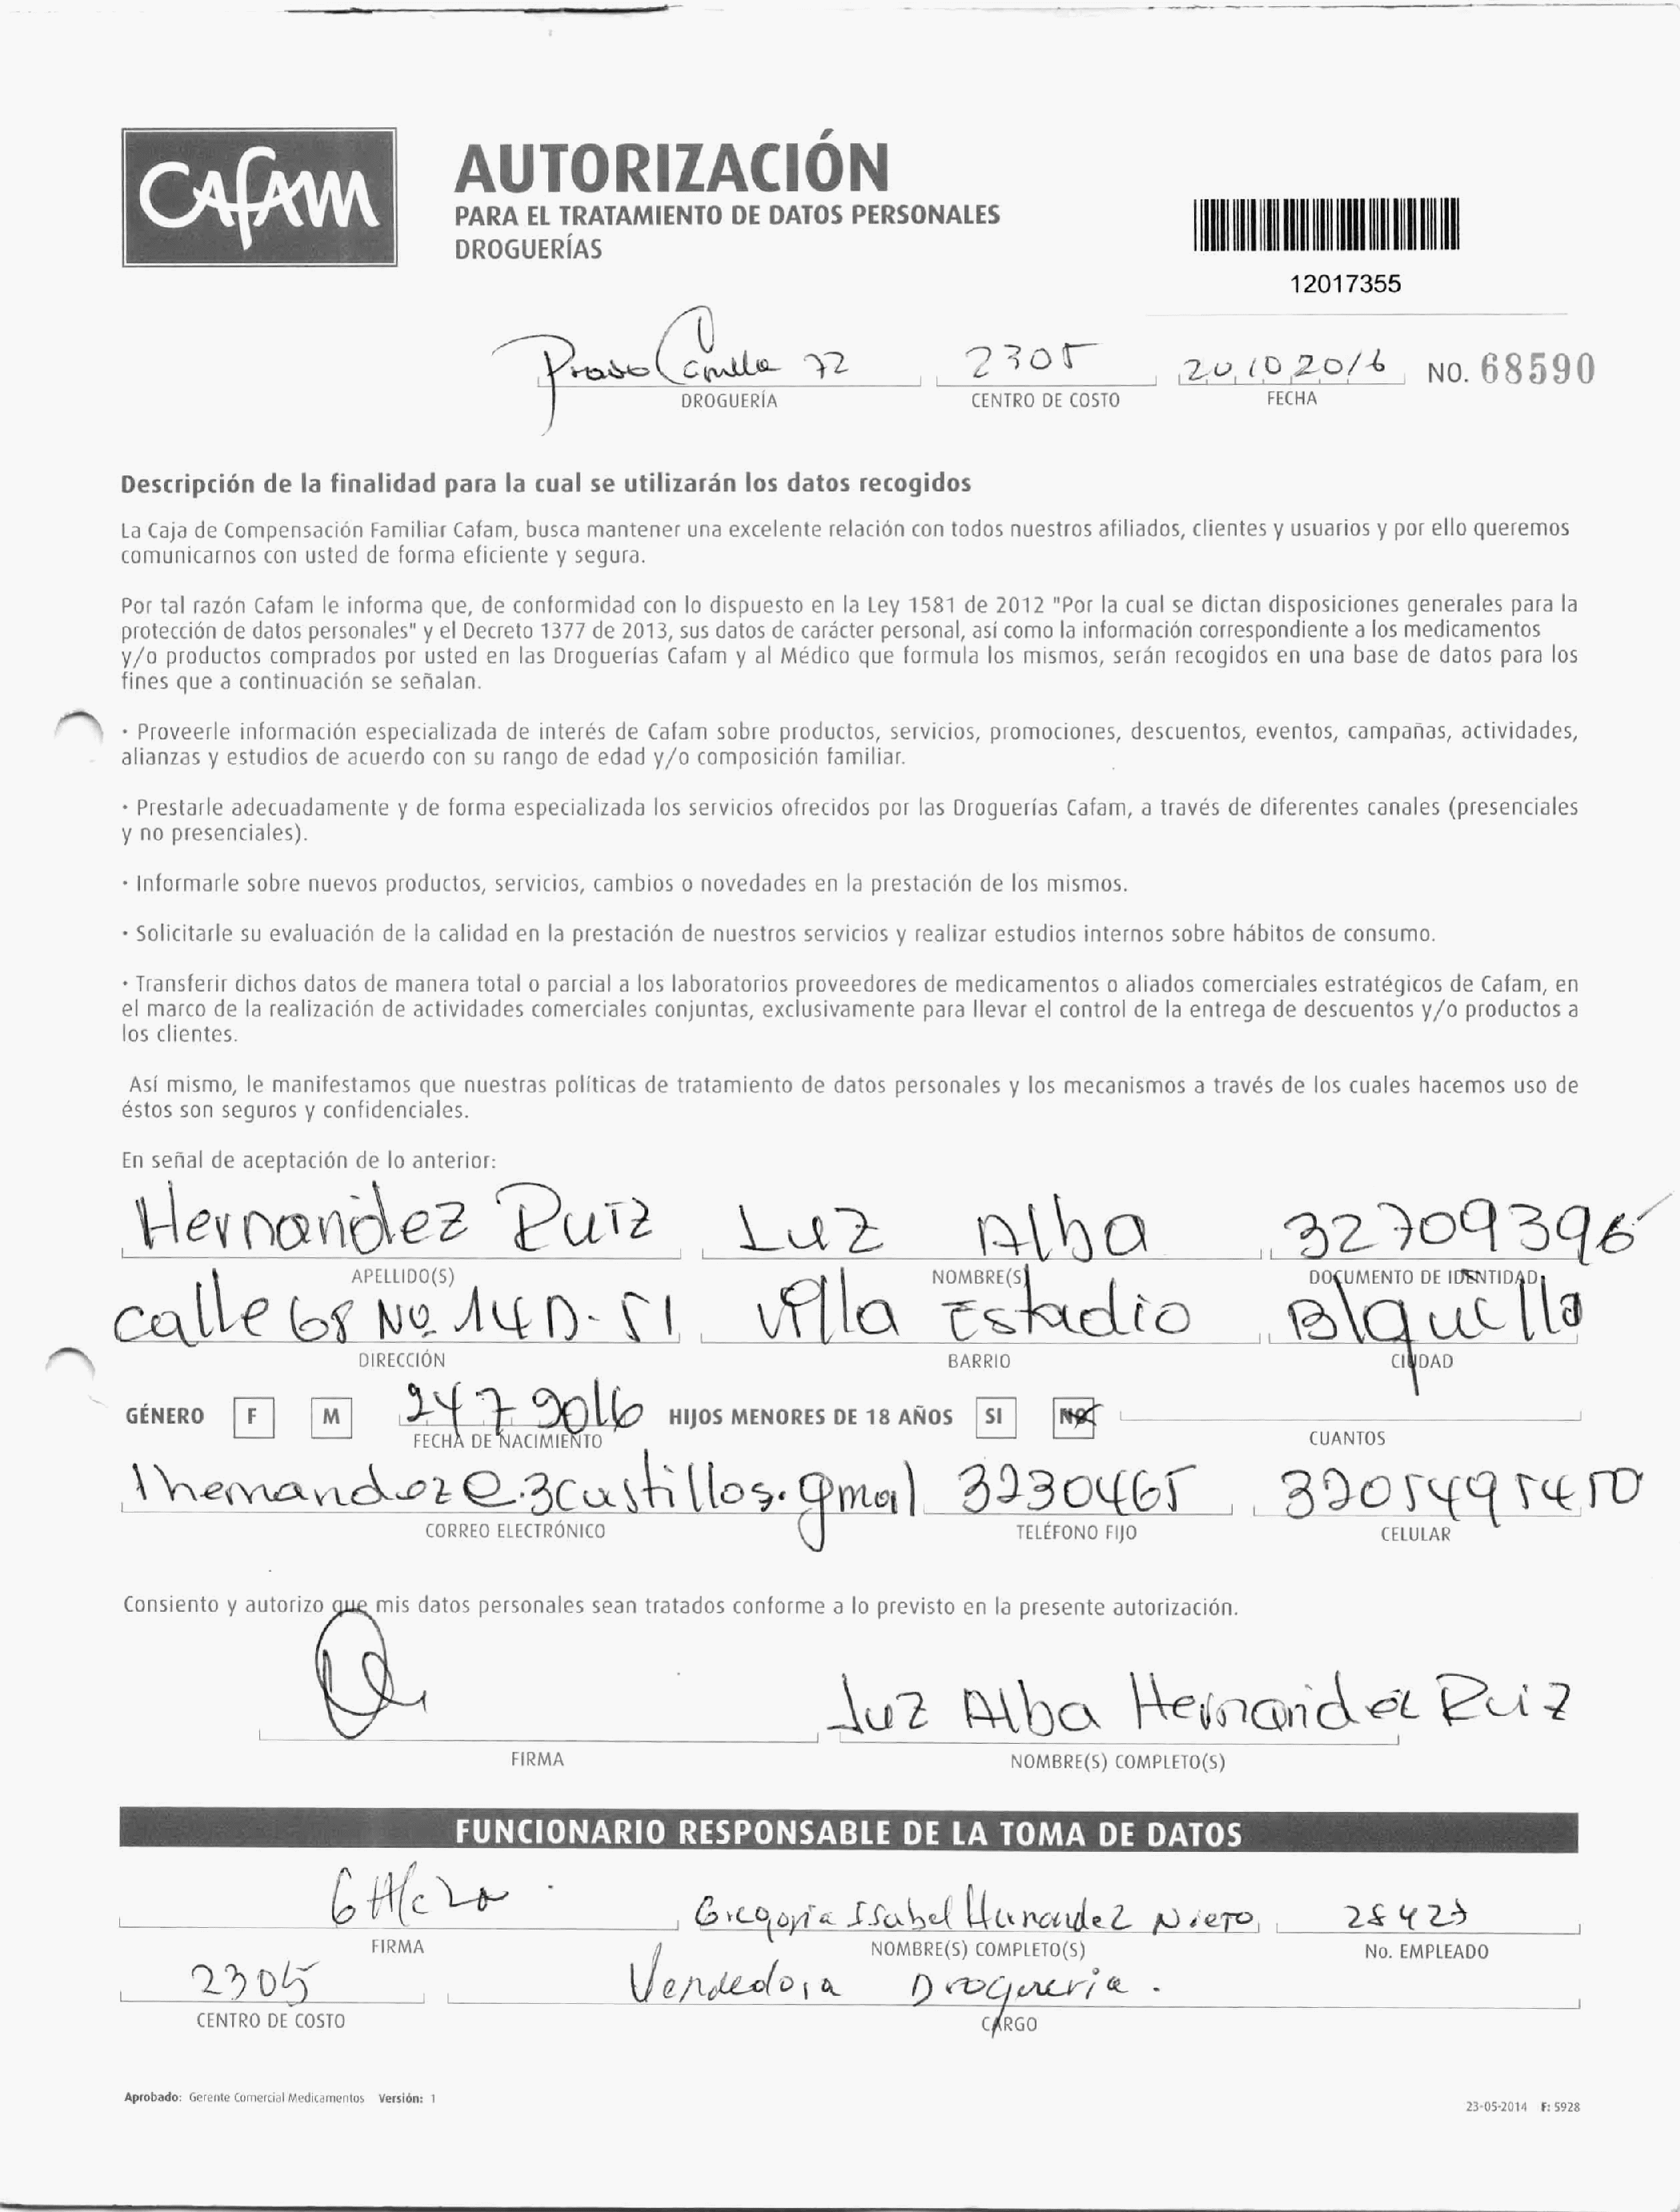 CAFAM
AUTORIZACIÓN
PARA EL TRATAMIENTO DE DATOS PERSONALES
DROGUERÍAS
12017355
Prado 72 2305 20 10 2016 NO. 68590
DROGUERÍA CENTRO DE COSTO FECHA
Descripción de la finalidad para la cual se utilizarán los datos recogidos
La Caja de Compensación Familiar Cafam, busca mantener una excelente relación con todos nuestros afiliados, clientes y usuarios y por ello queremos
comunicarnos con usted de forma eficiente y segura.
Por tal razón Cafam le informa que, de conformidad con lo dispuesto en la Ley 1581 de 2012 "Por la cual se dictan disposiciones generales para la
protección de datos personales" y el Decreto 1377 de 2013, sus datos de carácter personal, así como la información correspondiente a los medicamentos
y/o productos comprados por usted en las Droguerías Cafam y al Médico que formula los mismos, serán recogidos en una base de datos para los
fines que a continuación se señalan.
· Proveerle información especializada de interés de Cafam sobre productos, servicios, promociones, descuentos, eventos, campañas, actividades,
alianzas y estudios de acuerdo con su rango de edad y/o composición familiar.
· Prestarle adecuadamente y de forma especializada los servicios ofrecidos por las Droguerías Cafam, a través de diferentes canales (presenciales
y no presenciales).
· Informarle sobre nuevos productos, servicios, cambios o novedades en la prestación de los mismos.
· Solicitarle su evaluación de la calidad en la prestación de nuestros servicios y realizar estudios internos sobre hábitos de consumo.
· Transferir dichos datos de manera total o parcial a los laboratorios proveedores de medicamentos o aliados comerciales estratégicos de Cafam, en
el marco de la realización de actividades comerciales conjuntas, exclusivamente para llevar el control de la entrega de descuentos y/o productos a
los clientes.
Así mismo, le manifestamos que nuestras políticas de tratamiento de datos personales y los mecanismos a través de los cuales hacemos uso de
éstos son seguros y confidenciales.
En señal de aceptación de lo anterior:
Hernandez Ruiz Luz Alba 32709396
APELLIDO(S) NOMBRE(S) DOCUMENTO DE IDENTIDAD
calle 68 No. 14D-51 Villa Estadio B/quilla
DIRECCIÓN BARRIO CIUDAD
GÉNERO F M 24 7 2016 HIJOS MENORES DE 18 AÑOS SI NO
FECHA DE NACIMIENTO CUANTOS
lhernandez@.3castillos.gmail 3230465 3205495450
CORREO ELECTRÓNICO TELÉFONO FIJO CELULAR
Consiento y autorizo que mis datos personales sean tratados conforme a lo previsto en la presente autorización.
Luz Alba Hernandez Ruiz
FIRMA NOMBRE(S) COMPLETO(S)
FUNCIONARIO RESPONSABLE DE LA TOMA DE DATOS
Gregoria Isabel Hernandez Nieto 28427
FIRMA NOMBRE(S) COMPLETO(S) No. EMPLEADO
2305 Vendedora Drogueria.
CENTRO DE COSTO CARGO
Aprobado: Gerente Comercial Medicamentos Versión: 1
23-05-2014 F: 5928